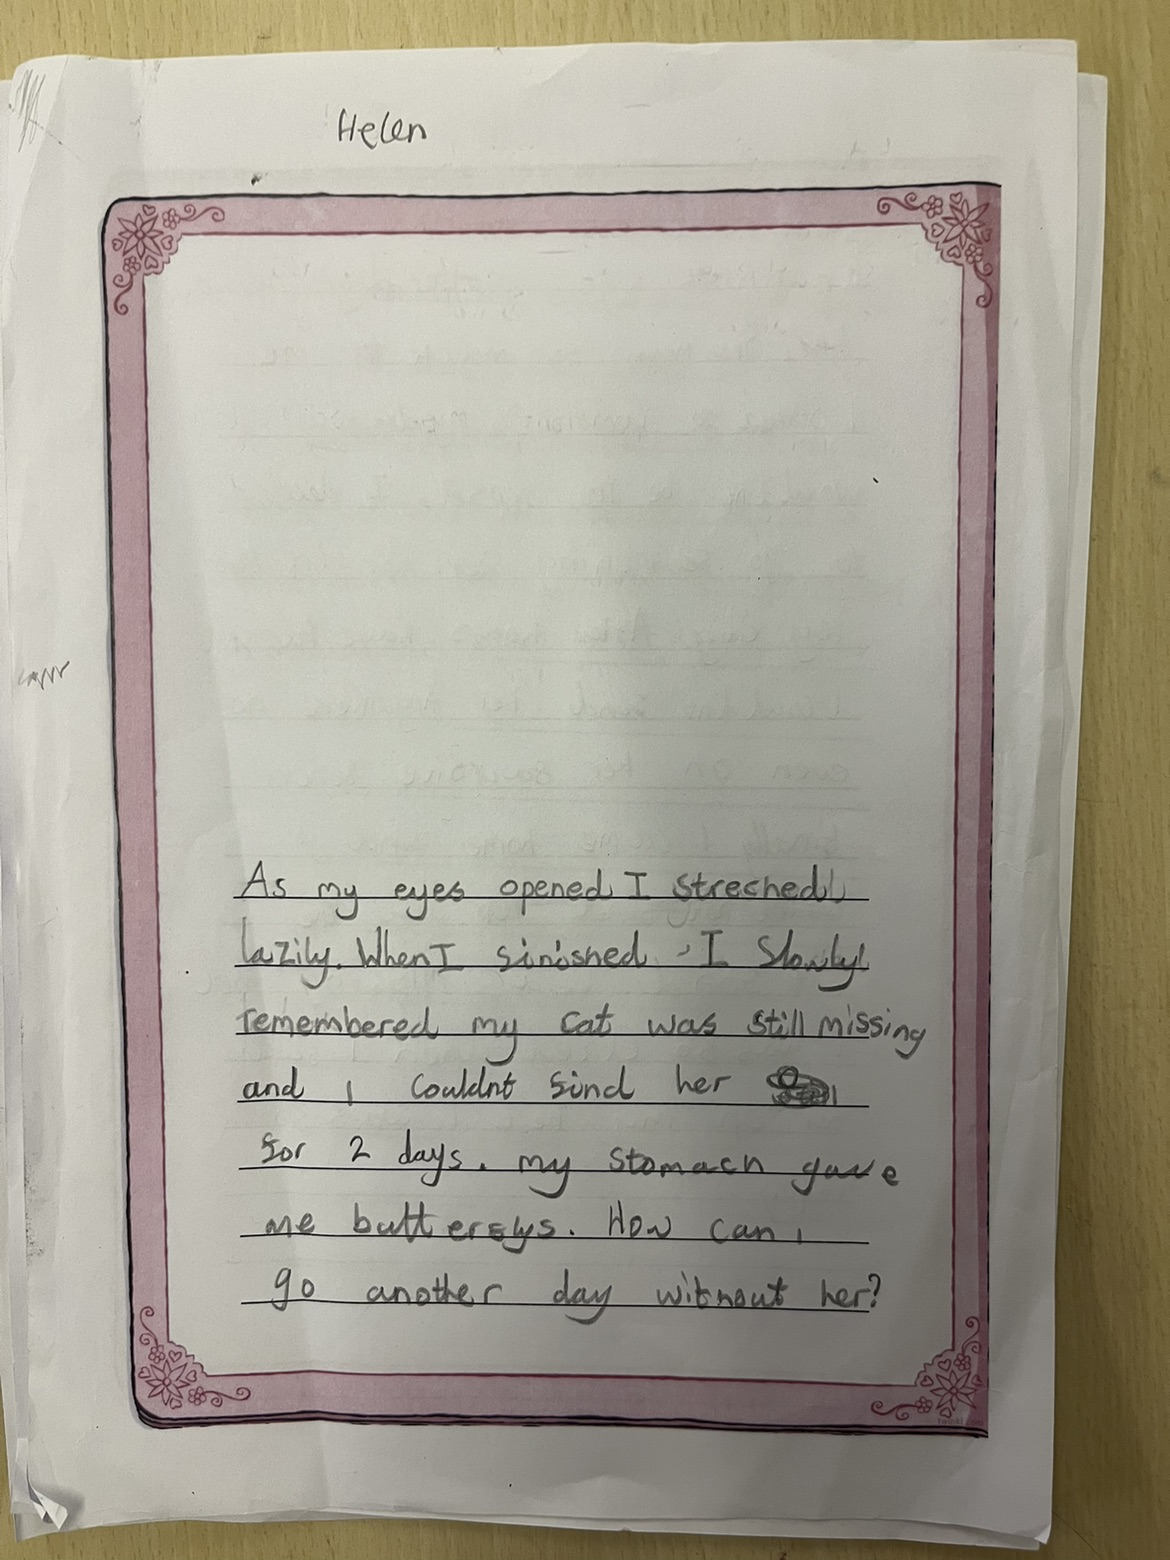 Helen
As my eyes opened I streched
lazily. When I finished, I Slowly
remembered my cat was still missing
and I couldnt find her
for 2 days. my stomach gave
me butterflys. How can I
go another day without her?